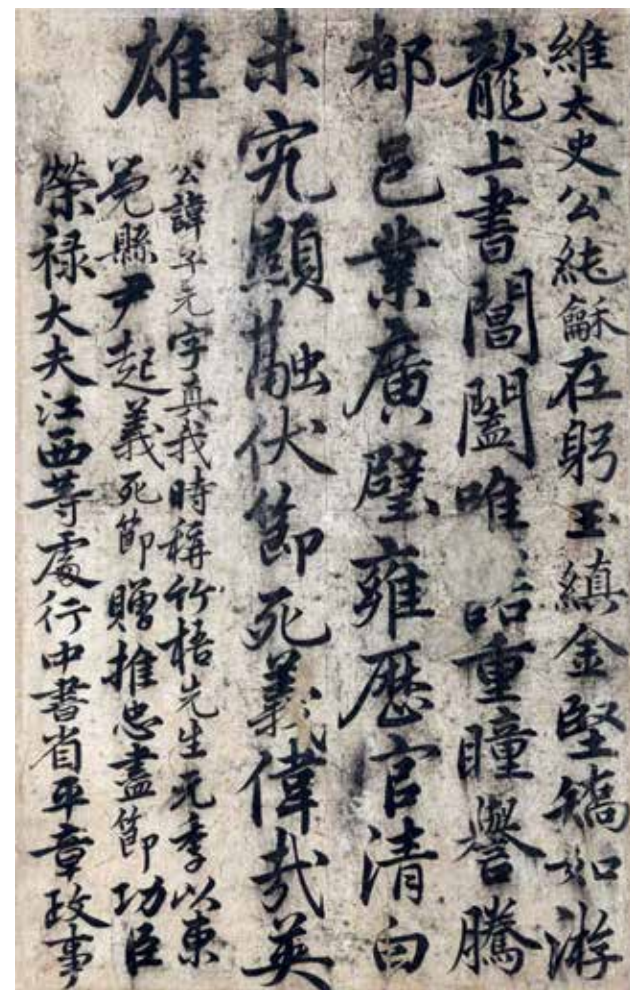 維太史公純龢在躬玉縝金堅矯如游
龍上書閶闔唯重瞳譽騰
都邑業廣璧雍歷官清白
未究顯融伏節死義偉哉英
雄
公諱子元字真我時稱竹梧先生元季以東
莞縣尹起義死節贈推忠盡節功臣
榮禄大夫江西等處行中書省平章政事